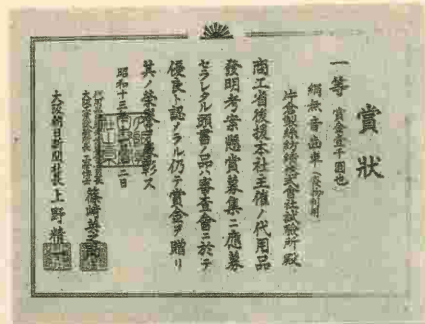 賞狀
一等 賞金壹千圓也
絹無音齒車
片倉製絲紡績株式會社試驗所殿
商工省後援本社主催ノ代用品
發明考案懸賞募集ニ應募
セラレタル頭書ノ品ハ審査會ニ於テ
優良ト認メラル仍テ賞金ヲ贈リ
其ノ榮譽ヲ表彰ス
昭和十三年十二月二日
大阪朝日新聞社長 上野精一